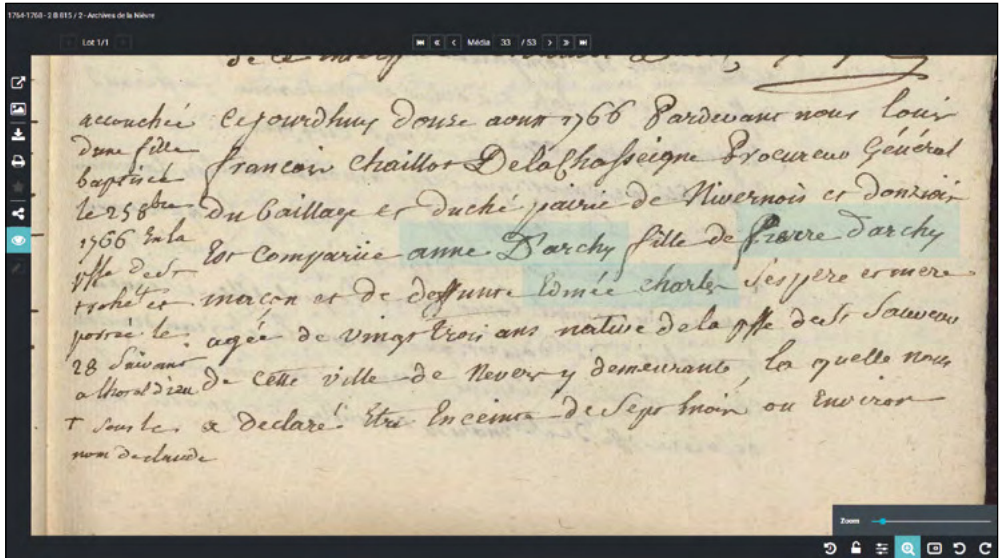 1764-1768 - 2 B 815 / 2 - Archives de la Nièvre
Lot 1/1
Média 33 / 53
accouchée
dune fille
baptisée
le 25 8bre
1766 En la
psse de St
trohé et
portée le
28 Suivant
a lhotel dieu
+ sous le
nom declaude
Cejourdhuy douze aoust 1766 Pardevant nous louis
francois chaillot Delachasseigne Procureur Général
du Baillage et duché pairie de Nivernois et donziois
Est Comparüe anne D'archy fille de pierre darchy
maçon et de deffunte Edmée charles Ses pere et mere
agée de vingt trois ans native de la psse de St Sauveur
de Cette ville de Nevers y demeurante, la quelle nous
a declaré Etre Enceinte de Sept mois ou Environ
Zoom